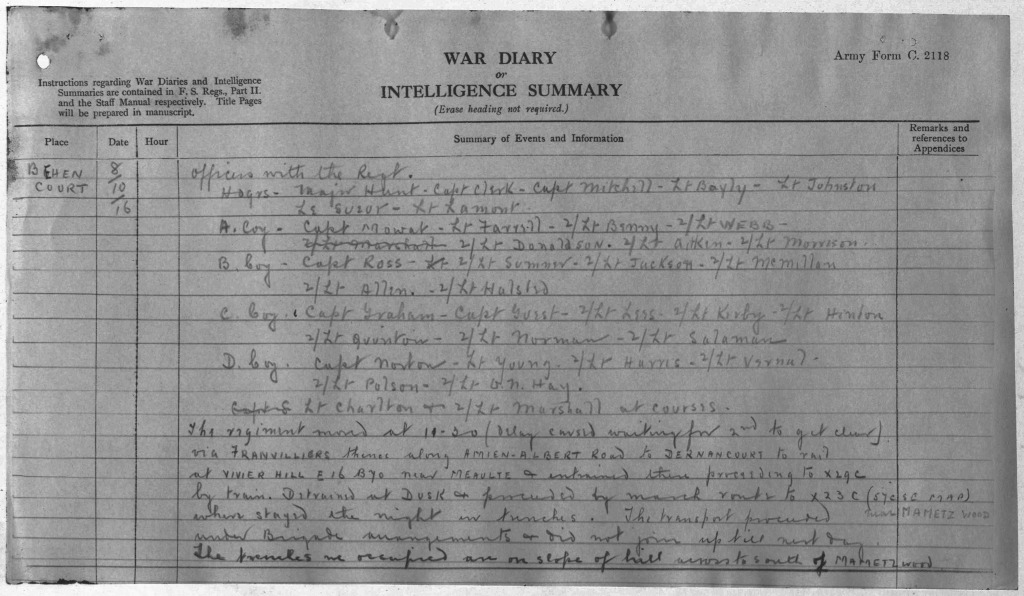 WAR DIARY
or
INTELLIGENCE SUMMARY
(Erase heading not required.)
Army Form C. 2118
Instructions regarding War Diaries and Intelligence
Summaries are contained in F. S. Regs., Part II.
and the Staff Manual respectively. Title Pages
will be prepared in manuscript.
Place
Date
Hour
Summary of Events and Information
Remarks and
references to
Appendices
BEHEN
COURT
8/10/16
Officers with the Regt.
Hdqrs - Major Hunt - Capt Clerk - Capt Mitchell - Lt Bayly - Lt Johnston
Lt Suzor - Lt Lamont.
A. Coy - Capt Mowat - Lt Farrell - 2/Lt Benny - 2/Lt WEBB -
2/Lt Marshall 2/Lt DONALDSON. 2/Lt Aitken - 2/Lt Morrison.
B. Coy - Capt Ross - Lt 2/Lt Sumner - 2/Lt Jackson - 2/Lt McMillan
2/Lt Allen. - 2/Lt Halsted
C. Coy. Capt Graham - Capt Guest - 2/Lt Lees - 2/Lt Kirby - 2/Lt Hinton
2/Lt Quinton - 2/Lt Norman - 2/Lt Salaman
D. Coy. Capt Norton - Lt Young. 2/Lt Harris - 2/Lt Vernal -
2/Lt Polson - 2/Lt O.N. Hay.
Lt Charlton & 2/Lt Marshall at courses.
The regiment moved at 11-30 (Delay caused waiting for 2nd to get clear)
via FRANVILLIERS thence along AMIEN-ALBERT Road to DERNANCOURT to rail
at VIVIER HILL E 16 B70 near MEAULTE & entrained there proceeding to X29C
by train. Detrained at DUSK & proceeded by march route to X23C (57c SC MAP)
near MAMETZ WOOD
where stayed the night in trenches. The transport proceeded
under Brigade arrangements & did not join up till next day.
The trenches we occupied are on slope of hill across to south of MAMETZ WOOD